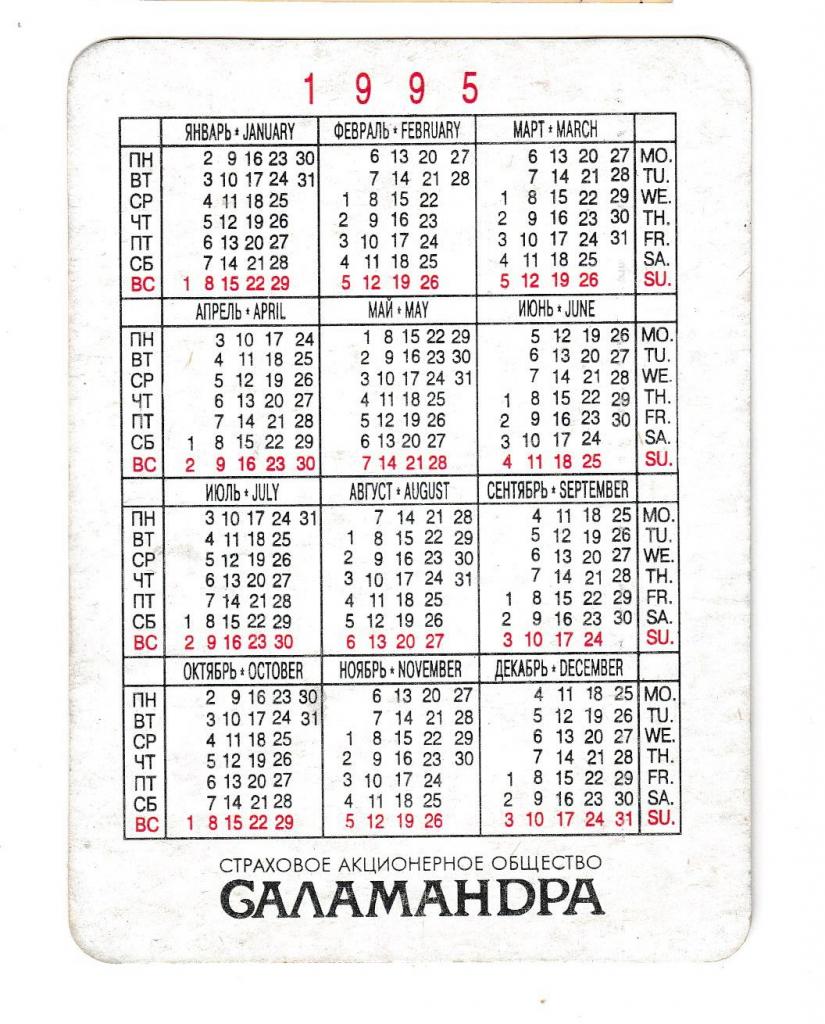 1 9 9 5
ЯНВАРЬ * JANUARY ФЕВРАЛЬ * FEBRUARY МАРТ * MARCH
ПН 2 9 16 23 30 6 13 20 27 6 13 20 27 MO.
ВТ 3 10 17 24 31 7 14 21 28 7 14 21 28 TU.
СР 4 11 18 25 1 8 15 22 1 8 15 22 29 WE.
ЧТ 5 12 19 26 2 9 16 23 2 9 16 23 30 TH.
ПТ 6 13 20 27 3 10 17 24 3 10 17 24 31 FR.
СБ 7 14 21 28 4 11 18 25 4 11 18 25 SA.
ВС 1 8 15 22 29 5 12 19 26 5 12 19 26 SU.
АПРЕЛЬ * APRIL МАЙ * MAY ИЮНЬ * JUNE
ПН 3 10 17 24 1 8 15 22 29 5 12 19 26 MO.
ВТ 4 11 18 25 2 9 16 23 30 6 13 20 27 TU.
СР 5 12 19 26 3 10 17 24 31 7 14 21 28 WE.
ЧТ 6 13 20 27 4 11 18 25 1 8 15 22 29 TH.
ПТ 7 14 21 28 5 12 19 26 2 9 16 23 30 FR.
СБ 1 8 15 22 29 6 13 20 27 3 10 17 24 SA.
ВС 2 9 16 23 30 7 14 21 28 4 11 18 25 SU.
ИЮЛЬ * JULY АВГУСТ * AUGUST СЕНТЯБРЬ * SEPTEMBER
ПН 3 10 17 24 31 7 14 21 28 4 11 18 25 MO.
ВТ 4 11 18 25 1 8 15 22 29 5 12 19 26 TU.
СР 5 12 19 26 2 9 16 23 30 6 13 20 27 WE.
ЧТ 6 13 20 27 3 10 17 24 31 7 14 21 28 TH.
ПТ 7 14 21 28 4 11 18 25 1 8 15 22 29 FR.
СБ 1 8 15 22 29 5 12 19 26 2 9 16 23 30 SA.
ВС 2 9 16 23 30 6 13 20 27 3 10 17 24 SU.
ОКТЯБРЬ * OCTOBER НОЯБРЬ * NOVEMBER ДЕКАБРЬ * DECEMBER
ПН 2 9 16 23 30 6 13 20 27 4 11 18 25 MO.
ВТ 3 10 17 24 31 7 14 21 28 5 12 19 26 TU.
СР 4 11 18 25 1 8 15 22 29 6 13 20 27 WE.
ЧТ 5 12 19 26 2 9 16 23 30 7 14 21 28 TH.
ПТ 6 13 20 27 3 10 17 24 1 8 15 22 29 FR.
СБ 7 14 21 28 4 11 18 25 2 9 16 23 30 SA.
ВС 1 8 15 22 29 5 12 19 26 3 10 17 24 31 SU.
СТРАХОВОЕ АКЦИОНЕРНОЕ ОБЩЕСТВО
САЛАМАНДРА